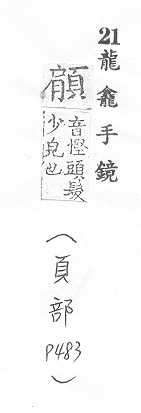 21龍龕手鏡
音慳頭髮
少皃也
(頁部 P483)